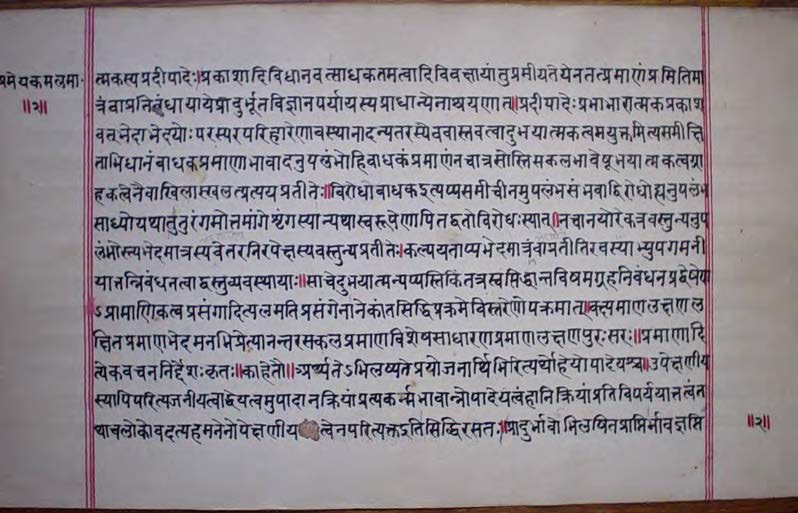 प्रमेयकमलमा·
॥२॥
त्मकस्यप्रदीपादेः॥प्रकाशादिविधानवत्साधकतमत्वादिविवक्षायांतुप्रमीयतेयेनतत्प्रमाणंप्रमितिमा
त्रंवाप्रतिबंधापायेप्रादुर्भूतविज्ञानपर्यायस्यप्राधान्येनाश्रयणात॥प्रदीपादेःप्रभाभारात्मकप्रकाश
वतभेदाभेदयोःपरस्परपरिहारेणावस्थानादन्यतरस्येववास्तवत्वादुभयात्मकत्वमयुक्तमित्यसमीक्षि
ताभिधानंबाधकप्रमाणाभावादनुपलंभोहिबाधकंप्रमाणंनचात्रसोस्तिसकलभावेषूभयात्मकत्वग्रा
हकत्वेनैवाखिलास्खलत्प्रत्ययप्रतीतेः॥विरोधोबाधकइत्यप्यसमीचीनमुपलंभसंभवाद्विरोधोह्यनुपलंभ
साध्योयथातुरंगमोत्तमांगेशृंगस्यान्यथास्वरूपेणापितद्वतोविरोधःस्यात्॥नचानयोरेकत्रवस्तुन्यनुप
लंभोस्त्यभेदमात्रस्यभेदमात्रस्यवेतरनिरपेक्षस्यवस्तुन्यप्रतीतेः।कल्पयताप्यभेदमात्रंभेदमात्रंवाप्रतीतिरवस्याभ्युपगमनी
यातन्निबंधनत्वाद्वस्तुव्यवस्थायाः॥साचेदुभयात्मन्यप्यस्तिकिंतत्रस्वसिद्धान्तविषमग्रहनिबंधनप्रद्वेषेण
ऽप्रामाणिकत्वप्रसंगादित्यलमतिप्रसंगेनानेकांतसिद्धिप्रक्रमेविस्तरेणोपक्रमात्॥वक्ष्यमाणलक्षणल
क्षितप्रमाणभेदमनभिप्रेत्यानन्तरसकलप्रमाणविशेषसाधारणप्रमाणलक्षणपुरःसरः॥प्रमाणादि
त्येकवचननिर्देशःकृतः॥काहेतौ॥अर्थ्यतेऽभिलष्यतेप्रयोजनार्थिभिरित्यर्थोहेयोपादेयश्च॥उपेक्षणीय
स्यापिपरित्यजनीयत्वाद्धेयत्वमुपादानक्रियांप्रत्यकर्म्मभावान्नोपादेयत्वंहानिक्रियांप्रतिविपर्ययातत्वंत
थाचलोकोवदत्यहमनेनोपेक्षणीयत्वेनपरित्यक्तइतिसिद्धिरसतः॥प्रादुर्भावोभिलषितप्राप्तिर्भावज्ञप्ति
॥२॥